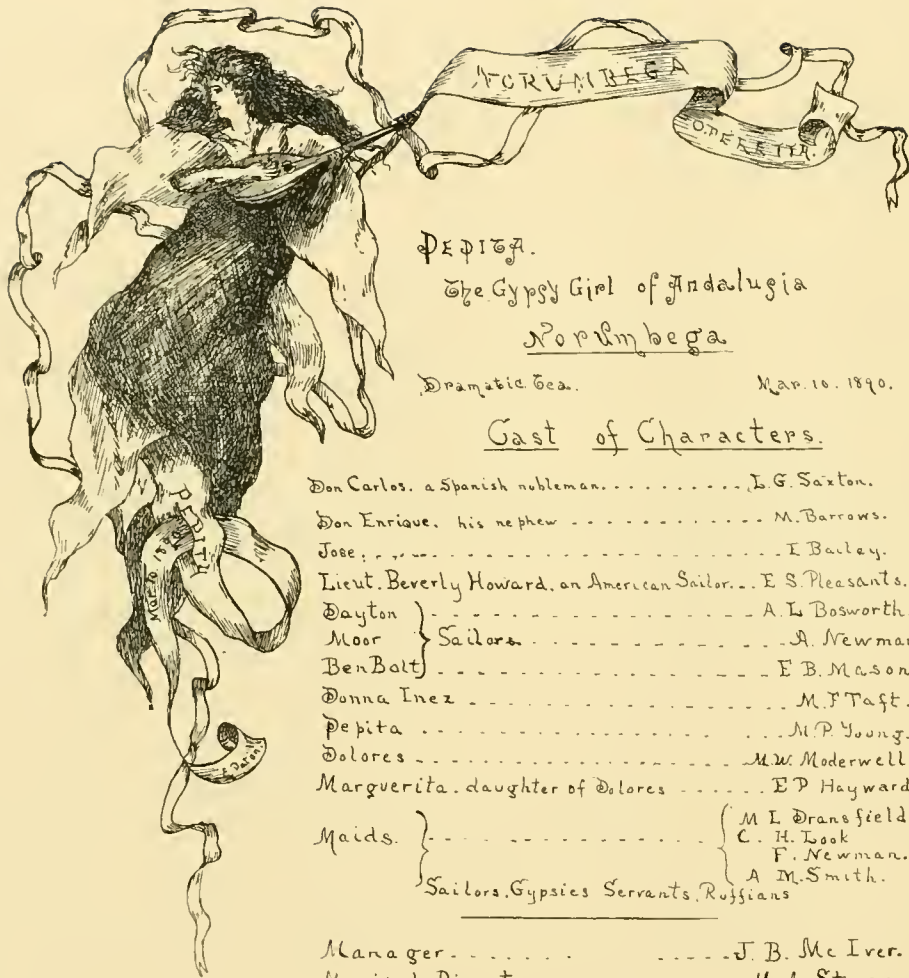 NORUMBEGA
OPERETTA.
PEPITA.
The Gypsy Girl of Andalugia
Norumbega
Dramatic Tea. Mar. 10. 1890.
Cast of Characters.
Don Carlos. a Spanish nobleman. L. G. Saxton.
Don Enrique. his nephew M. Barrows.
Jose. E Bailey.
Lieut. Beverly Howard, an American Sailor. E S. Pleasants.
Dayton A. L Bosworth
Moor } Sailors A. Newman
Ben Bolt E B. Mason
Donna Inez M. F Taft.
Pepita M. P. Young.
Dolores M. W. Moderwell
Marguerita. daughter of Dolores E P Hayward
Maids. M L Dransfield
C. H. Look
F. Newman.
A M. Smith.
Sailors, Gypsies Servants, Ruffians
Manager J. B. Mc Iver.
PEPITA
Mar. 10 1890